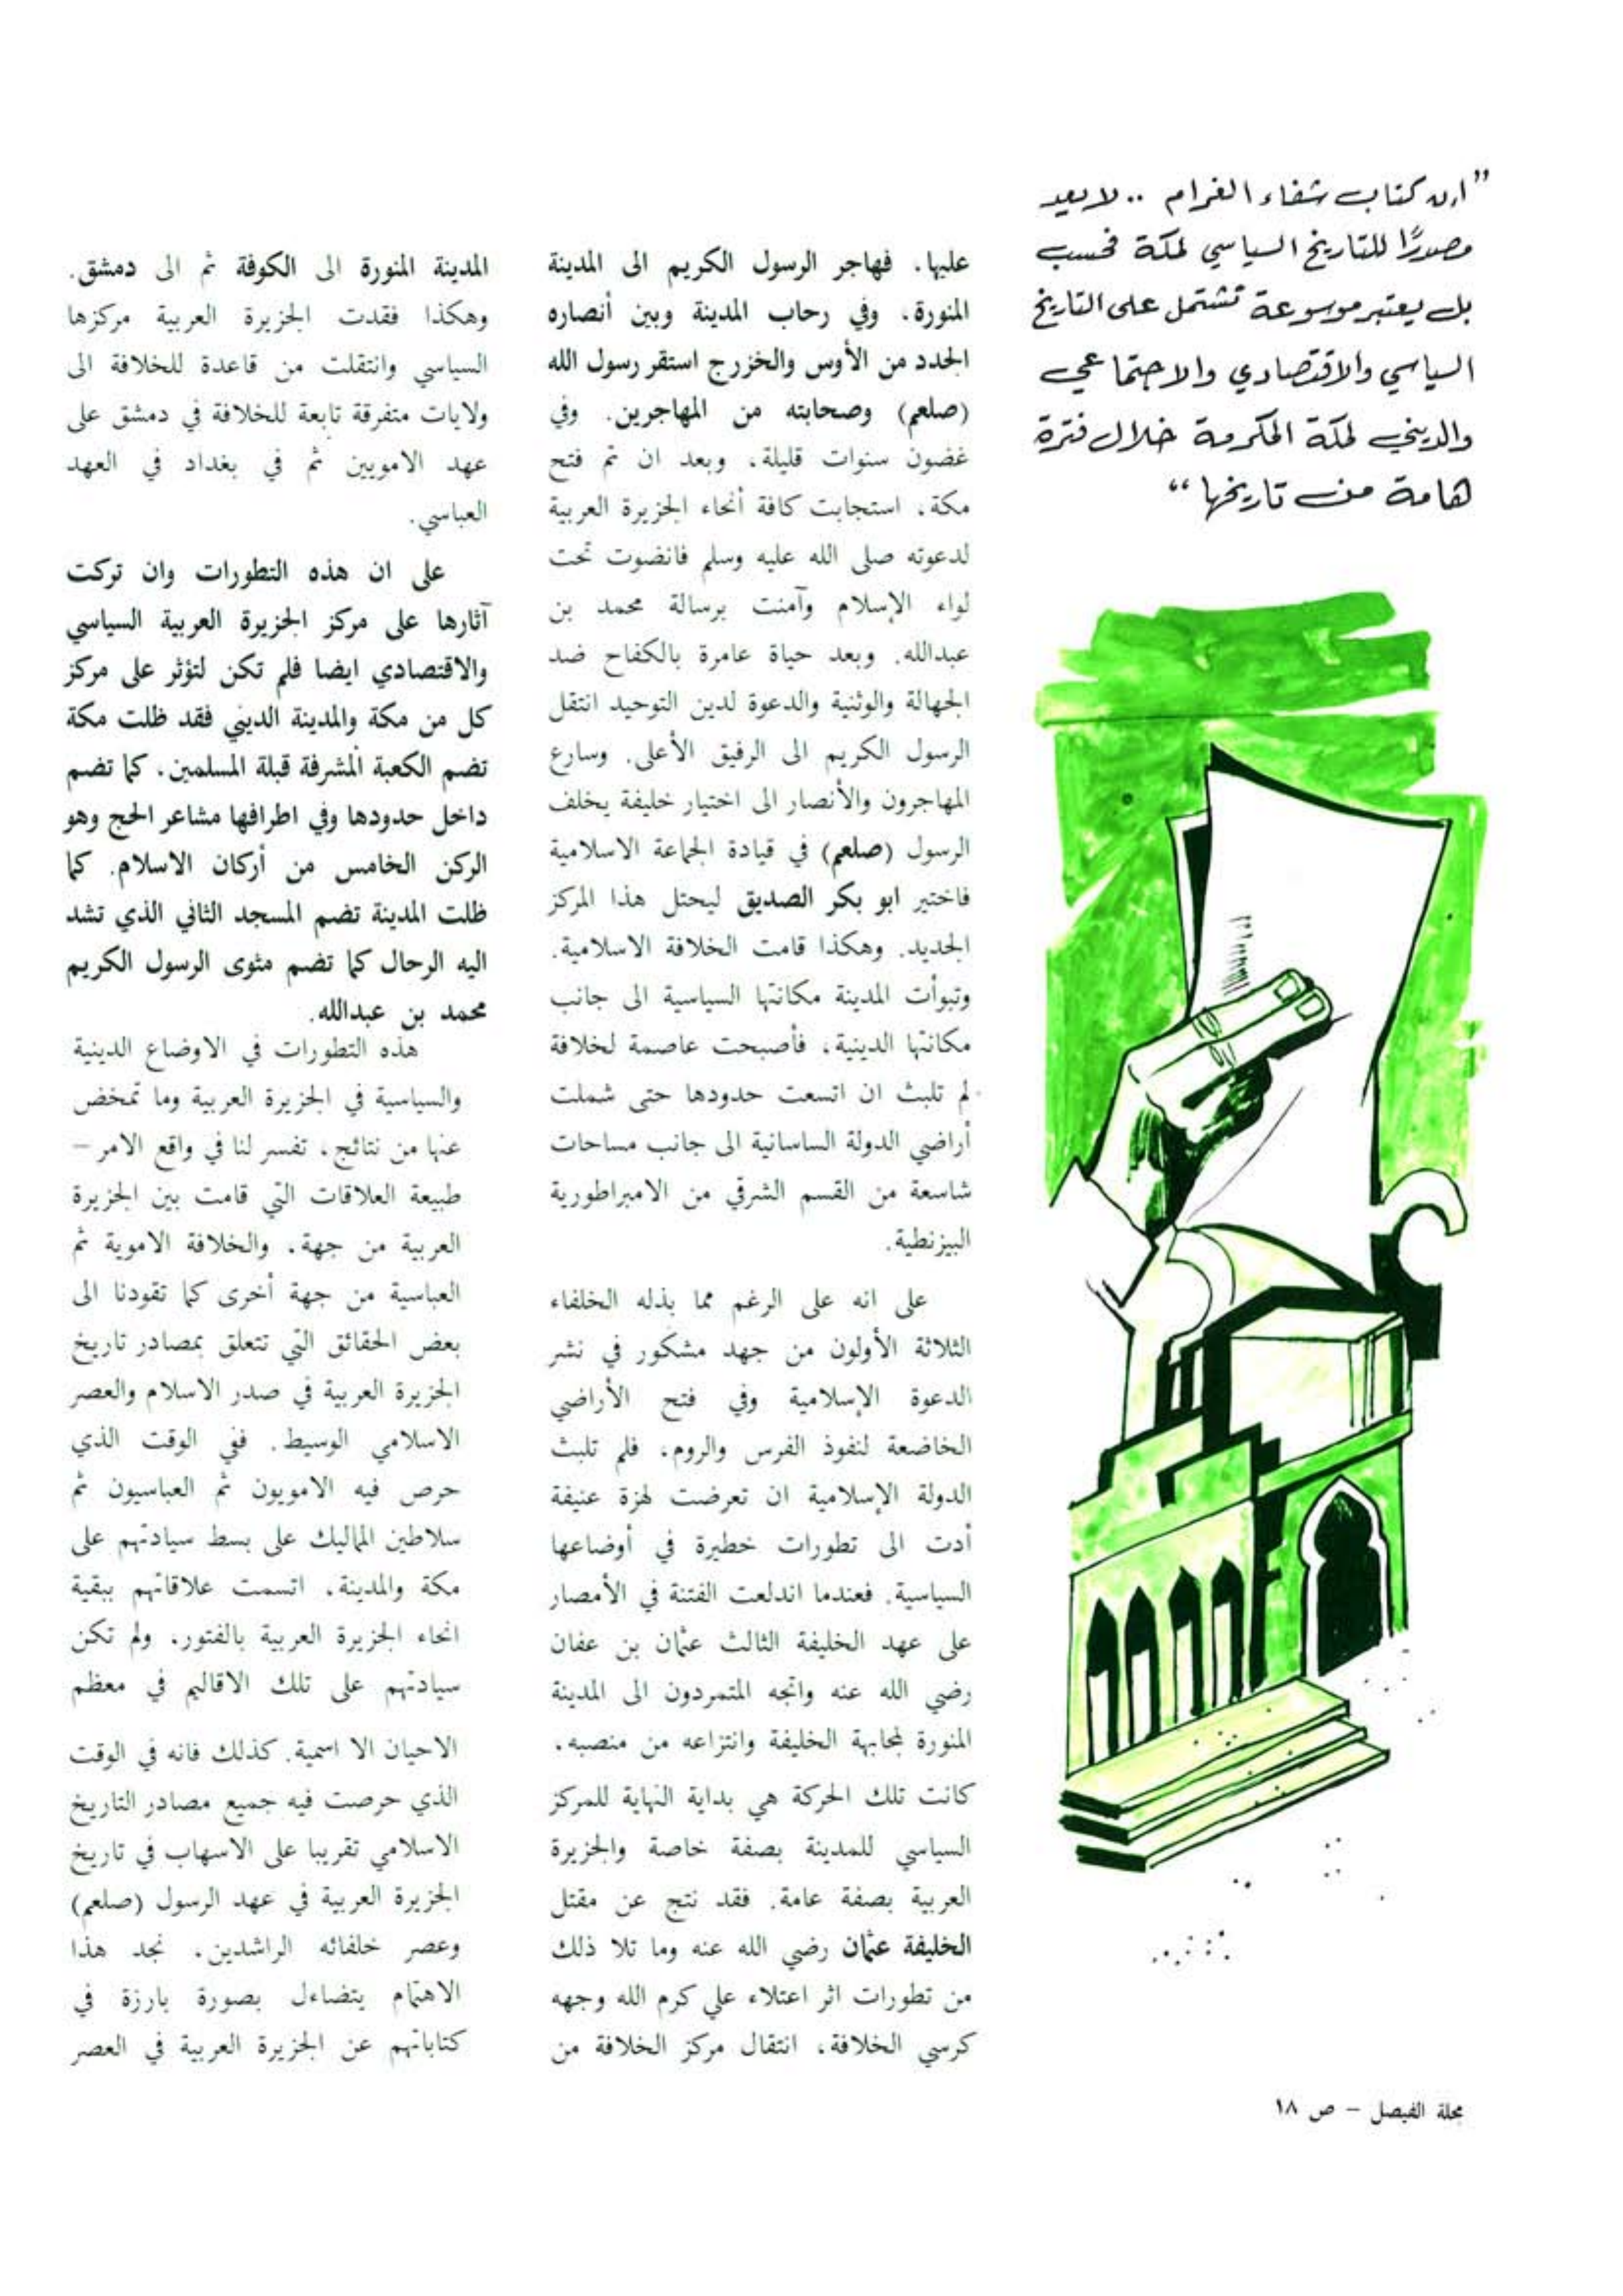 "ان كتاب شفاء الغرام .. لا يعد
مصدرًا للتاريخ السياسي لمكة فحسب
بل يعتبر موسوعة تشتمل على التاريخ
السياسي والاقتصادي والاجتماعي
والديني لمكة المكرمة خلال فترة
هامة من تاريخها"
عليها. فهاجر الرسول الكريم الى المدينة
المنورة، وفي رحاب المدينة وبين أنصاره
الجدد من الأوس والخزرج استقر رسول الله
(صلعم) وصحابته من المهاجرين. وفي
غضون سنوات قليلة، وبعد ان تم فتح
مكة، استجابت كافة أنحاء الجزيرة العربية
لدعوته صلى الله عليه وسلم فانضوت تحت
لواء الإسلام وآمنت برسالة محمد بن
عبدالله. وبعد حياة عامرة بالكفاح ضد
الجهالة والوثنية والدعوة لدين التوحيد انتقل
الرسول الكريم الى الرفيق الأعلى. وسارع
المهاجرون والأنصار الى اختيار خليفة يخلف
الرسول (صلعم) في قيادة الجماعة الاسلامية
فاختير ابو بكر الصديق ليحتل هذا المركز
الجديد. وهكذا قامت الخلافة الاسلامية.
وتبوأت المدينة مكانتها السياسية الى جانب
مكانتها الدينية، فأصبحت عاصمة لخلافة
لم تلبث ان اتسعت حدودها حتى شملت
أراضي الدولة الساسانية الى جانب مساحات
شاسعة من القسم الشرقي من الامبراطورية
البيزنطية.
على انه على الرغم مما بذله الخلفاء
الثلاثة الأولون من جهد مشكور في نشر
الدعوة الإسلامية وفي فتح الأراضي
الخاضعة لنفوذ الفرس والروم، فلم تلبث
الدولة الإسلامية ان تعرضت لهزة عنيفة
أدت الى تطورات خطيرة في أوضاعها
السياسية. فعندما اندلعت الفتنة في الأمصار
على عهد الخليفة الثالث عثمان بن عفان
رضي الله عنه واتجه المتمردون الى المدينة
المنورة لمجابهة الخليفة وانتزاعه من منصبه،
كانت تلك الحركة هي بداية النهاية للمركز
السياسي للمدينة بصفة خاصة والجزيرة
العربية بصفة عامة. فقد نتج عن مقتل
الخليفة عثمان رضي الله عنه وما تلا ذلك
من تطورات اثر اعتلاء علي كرم الله وجهه
كرسي الخلافة، انتقال مركز الخلافة من
المدينة المنورة الى الكوفة ثم الى دمشق.
وهكذا فقدت الجزيرة العربية مركزها
السياسي وانتقلت من قاعدة للخلافة الى
ولايات متفرقة تابعة للخلافة في دمشق على
عهد الامويين ثم في بغداد في العهد
العباسي.
على ان هذه التطورات وان تركت
آثارها على مركز الجزيرة العربية السياسي
والاقتصادي ايضا فلم تكن لتؤثر على مركز
كل من مكة والمدينة الديني فقد ظلت مكة
تضم الكعبة المشرفة قبلة المسلمين، كما تضم
داخل حدودها وفي اطرافها مشاعر الحج وهو
الركن الخامس من أركان الاسلام. كما
ظلت المدينة تضم المسجد الثاني الذي تشد
اليه الرحال كما تضم مثوى الرسول الكريم
محمد بن عبدالله.
هذه التطورات في الاوضاع الدينية
والسياسية في الجزيرة العربية وما تمخض
عنها من نتائج، تفسر لنا في واقع الامر –
طبيعة العلاقات التي قامت بين الجزيرة
العربية من جهة، والخلافة الاموية ثم
العباسية من جهة أخرى كما تقودنا الى
بعض الحقائق التي تتعلق بمصادر تاريخ
الجزيرة العربية في صدر الاسلام والعصر
الاسلامي الوسيط. ففي الوقت الذي
حرص فيه الامويون ثم العباسيون ثم
سلاطين المماليك على بسط سيادتهم على
مكة والمدينة، اتسمت علاقاتهم ببقية
انحاء الجزيرة العربية بالفتور، ولم تكن
سيادتهم على تلك الاقاليم في معظم
الاحيان الا اسمية. كذلك فانه في الوقت
الذي حرصت فيه جميع مصادر التاريخ
الاسلامي تقريبا على الاسهاب في تاريخ
الجزيرة العربية في عهد الرسول (صلعم)
وعصر خلفائه الراشدين، نجد هذا
الاهتمام يتضاءل بصورة بارزة في
كتاباتهم عن الجزيرة العربية في العصر
مجلة الفيصل – ص ١٨